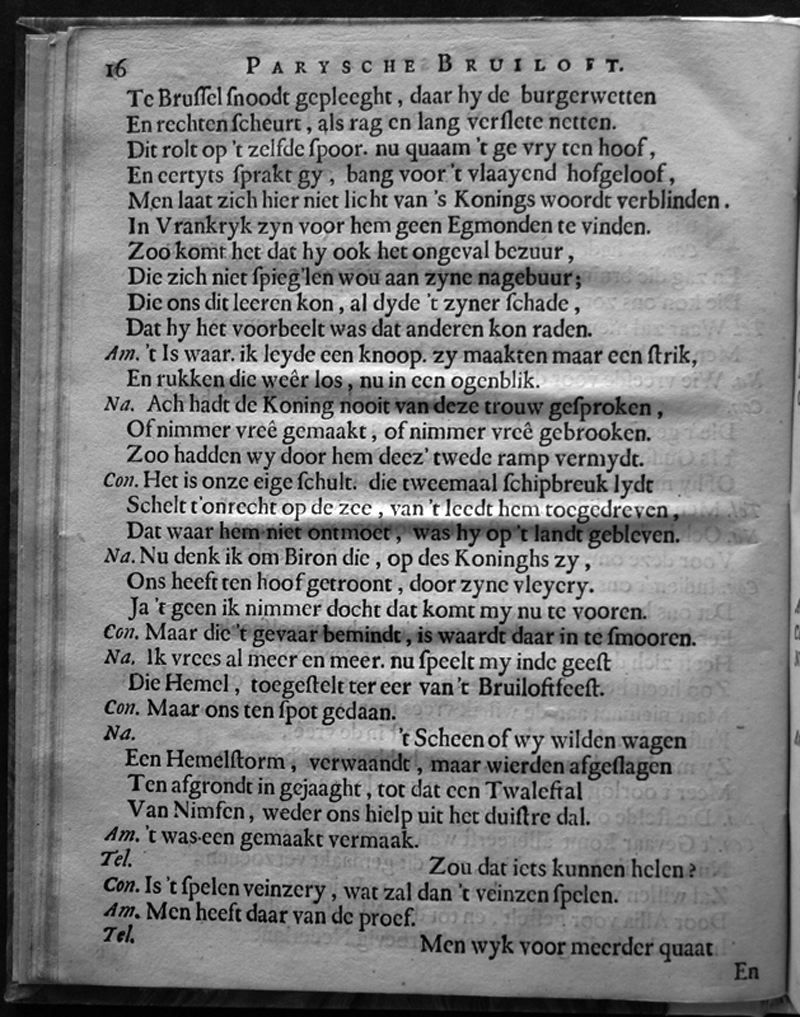 16 PARYSCHE BRUILOFT.
Te Bruſſel ſnoodt gepleeght, daar hy de burgerwetten
En rechten ſcheurt, als rag en lang verſlete netten.
Dit rolt op 't zelfde ſpoor. nu quaam 't ge vry ten hoof,
En eertyts ſprakt gy, bang voor 't vlaayend hofgeloof,
Men laat zich hier niet licht van 's Konings woordt verblinden.
In Vrankryk zyn voor hem geen Egmonden te vinden.
Zoo komt het dat hy ook het ongeval bezuur,
Die zich niet ſpieg'len wou aan zyne nagebuur;
Die ons dit leeren kon, al dyde 't zyner ſchade,
Dat hy het voorbeelt was dat anderen kon raden.
Am. 't Is waar. ik leyde een knoop. zy maakten maar een ſtrik,
En rukken die weêr los, nu in een ogenblik.
Na. Ach hadt de Koning nooit van deze trouw geſproken,
Of nimmer vreê gemaakt, of nimmer vreê gebrooken.
Zoo hadden wy door hem deez' twede ramp vermydt.
Con. Het is onze eige ſchult. die tweemaal ſchipbreuk lydt
Schelt t'onrecht op de zee, van 't leedt hem toegedreven,
Dat waar hem niet ontmoet, was hy op 't landt gebleven.
Na. Nu denk ik om Biron die, op des Koninghs zy,
Ons heeft ten hoof getroont, door zyne vleyery.
Ja 't geen ik nimmer docht dat komt my nu te vooren.
Con. Maar die 't gevaar bemindt, is waardt daar in te ſmooren.
Na. Ik vrees al meer en meer. nu ſpeelt my inde geeſt
Die Hemel, toegeſtelt ter eer van 't Bruiloftfeeſt.
Con. Maar ons ten ſpot gedaan.
Na. 't Scheen of wy wilden wagen
Een Hemelſtorm, verwaandt, maar wierden afgeſlagen
Ten afgrondt in gejaaght, tot dat een Twaleftal
Van Nimfen, weder ons hielp uit het duiſtre dal.
Am. 't was een gemaakt vermaak.
Tel. Zou dat iets kunnen helen?
Con. Is 't ſpelen veinzery, wat zal dan 't veinzen ſpelen.
Am. Men heeft daar van de proef.
Tel. Men wyk voor meerder quaat
En